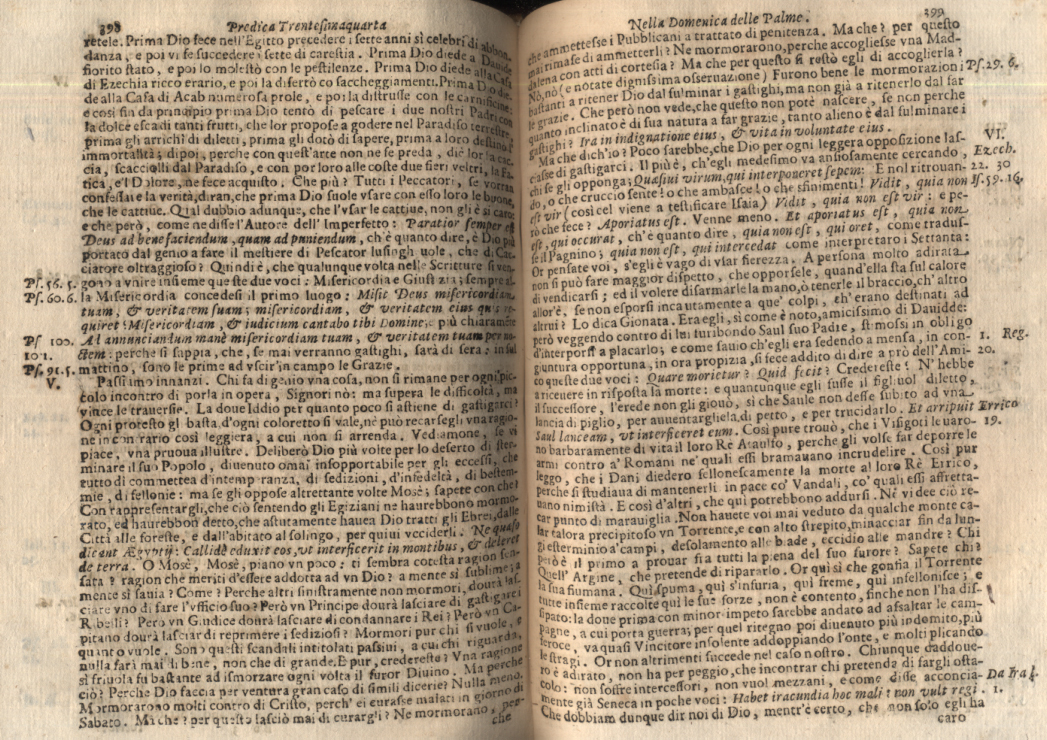 398
Predica Trentesimaquarta
retele. Prima Dio fece nell'Egitto precedere i sette anni sì celebri di abbon-
danza, e poi vi fe succedere i sette di carestia. Prima Dio diede a Dauide
fiorito stato, e poi lo molestò con le pestilenze. Prima Dio diede alla Casa
di Ezechia ricco erario, e poi la disertò co saccheggiamenti. Prima Dio die-
de alla Casa di Acab numerosa prole, e poi la distrusse con le carnificine.
e così fin da principio prima Dio tentò di pescare i due nostri Padri con
la dolce esca di tanti frutti, che lor propose a godere nel Paradiso terrestre,
prima gli arrichì di diletti, prima gli dotò di sapere, prima a loro destinò l'
immortalità; dipoi, perche con quest'arte non ne fe preda, diè lor la cac-
cia, scacciolli dal Paradiso, e con por loro alle coste due fieri veltri, la Fa-
tica, e'l Dolore, ne fece acquisto. Che più? Tutti i Peccatori, se vorran
confessare la verità, diran, che prima Dio suole vsare con esso loro le buone,
che le cattiue. Qual dubbio adunque, che l'vsar le cattiue, non gli è sì caro:
e che però, come ne disse l'Autore dell'Imperfetto: Paratior semper est
Deus ad benefaciendum, quam ad puniendum, ch'è quanto dire, è Dio più
portato dal genio a fare il mestiere di Pescator lusingheuole, che di Cac-
ciatore oltraggioso? Quindi è, che qualunque volta nelle Scritture si ven-
Ps. 56. 5. gono a vnire insieme queste due voci: Misericordia e Giustizia; sempre al-
Ps. 60. 6. la Misericordia concedesi il primo luogo: Misit Deus misericordiam
tuam, & veritatem suam; misericordiam, & veritatem eius quis re-
quiret: Misericordiam, & iudicium cantabo tibi Domine; e più chiaramente
Ps 100. Ad annunciandum manè misericordiam tuam, & veritatem tuam per no-
101. ctem: perche si sappia, che, se mai verranno gastighi, sarà di sera: in sul
Ps. 91. 5. mattino, sono le prime ad vscir'in campo le Grazie.
V. Passiamo innanzi. Chi fa di genio vna cosa, non si rimane per ogni pic-
colo incontro di porla in opera, Signori nò: ma supera le difficoltà, ma
vince le trauersie. La doue Iddio per quanto poco si astiene di gastigarci?
Ogni protesto gli basta, d'ogni coloretto si vale, nè può recarsegli vna ragio-
ne in contrario così leggiera, a cui non si arrenda. Vediamone, se vi
piace, vna pruoua illustre. Deliberò Dio più volte per lo deserto di ster-
minare il suo Popolo, diuenuto omai insopportabile per gli eccessi, che
tutto dì commettea d'intemperanza, di sedizioni, d'infedeltà, di bestem-
mie, di fellonie: ma se gli oppose altrettante volte Mosè; sapete con che?
Con rappresentargli, che ciò sentendo gli Egiziani ne haurebbono mormo-
rato, ed haurebbon detto, che astutamente hauea Dio tratti gli Ebrei, dalle
Città alle foreste, e dall'abitato al solingo, per quiui vcciderli. Ne quæso
dicant Ægyptij: Callidè eduxit eos, vt interficerit in montibus, & deleret
de terra. O Mosè, Mosè, piano vn poco: ti sembra cotesta ragion sen-
sata? ragion che meriti d'essere addotta ad vn Dio? a mente sì sublime; a
mente sì sauia? Come? Perche altri sinistramente non mormori, dourà las-
ciare vno di fare l'vfficio suo? Però vn Principe dourà lasciare di gastigare i
Ribelli? Però vn Giudice dourà lasciare di condannare i Rei? Però vn Ca-
pitano dourà lasciar di reprimere i sediziosi? Mormori pur chi si vuole, e
quanto vuole. Sono questi scandali intitolati passiui, a cui chi riguarda,
nulla farà mai di bene, non che di grande. E pur, credereste? Vna ragione
sì friuola fu bastante ad ismorzare ogni volta il furor Diuino. Ma perche
ciò? Perche Dio faccia per ventura gran caso di simili dicerie? Nulla meno.
Mormorarono molti contro di Cristo, perch' ei curasse malati in giorno di
Sabato. Ma che? per questo lasciò mai di curargli? Ne mormorano, per-
che
Nella Domenica delle Palme.
399
che ammettesse i Pubblicani a trattato di penitenza. Ma che? per questo
mai rimase di ammetterli? Ne mormorarono, perche accogliesse vna Mad-
dalena con atti di cortesia? Ma che per questo si restò egli di accoglierla?
Nò, nò (e notate dignissima osseruazione) Furono bene le mormorazioni Ps. 29. 6.
bastanti a ritener Dio dal fulminar i gastighi, ma non già a ritenerlo dal far
le grazie. Che però non vede, che questo non potè nascere, se non perche
quanto inclinato è di sua natura a far grazie, tanto alieno è dal fulminare i
gastighi? Ira in indignatione eius, & vita in voluntate eius. VI.
Ma che dich'io? Poco sarebbe, che Dio per ogni leggera opposizione las-
ciasse di gastigarci. Il più è, ch'egli medesimo va ansiosamente cercando, Ezech.
chi se gli opponga: Quæsiui virum, qui interponeret sepem: E nol ritrouan- 22. 30
do, o che cruccio sente! o che ambasce! o che sfinimenti! Vidit, quia non Is. 59. 16.
est vir (così cel viene a testificare Isaia) Vidit, quia non est vir: e pe-
rò che fece? Aporiatus est. Venne meno. Et aporiatus est, quia non
est, qui occurat, ch'è quanto dire, quia non est, qui oret, come tradus-
se il Pagnino; quia non est, qui intercedat come interpretaro i Settanta:
Or pensate voi, s'egli è vago di vsar fierezza. A persona molto adirata
non si può fare maggior dispetto, che opporsele, quand'ella sta sul calore
di vendicarsi; ed il volere disarmarle la mano, ò tenerle il braccio, ch'altro
allor'è, se non esporsi incautamente a que' colpi, ch'erano destinati ad
altrui? Lo dica Gionata. Era egli, sì come è noto, amicissimo di Dauidde:
però veggendo contro di lui furibondo Saul suo Padre, stimossi in obligo 1. Reg.
d'interporsi a placarlo; e come sauio ch'egli era sedendo a mensa, in con- 20.
giuntura opportuna, in ora propizia, si fece addito di dire a prò dell'Ami-
co queste due voci: Quare morietur? Quid fecit? Credereste? N'hebbe
a riceuere in risposta la morte: e quantunque egli fusse il figliuol diletto,
il successore, l'erede non gli giouò, sì che Saule non desse subito ad vna
lancia di piglio, per auuentargliela di petto, e per trucidarlo. Et arripuit Errico
Saul lanceam, vt interficeret eum. Così pure trouò, che i Visigoti leuaro- 19.
no barbaramente di vita il loro Rè Ataulfo, perche gli volse far deporre le
armi contro a' Romani ne' quali essi bramauano incrudelire. Così pur
leggo, che i Dani diedero fellonescamente la morte al loro Rè Errico,
perche si studiaua di mantenerli in pace co' Vandali, co' quali essi affretta-
uano nimistà. E così d'altri, che quì potrebbono addursi. Nè vi dee ciò re-
car punto di marauiglia. Non hauete voi mai veduto da qualche monte ca-
lar talora precipitoso vn Torrente, e con alto strepito, minacciar fin da lun-
gi esterminio a' campi, desolamento alle biade, eccidio alle mandre? Chi
però è il primo a prouar sia tutti la piena del suo furore? Sapete chi?
Quell' Argine, che pretende di ripararlo. Or quì sì che gonfia il Torrente
la sua fiumana. Quì spuma, quì s'infuria, quì freme, quì infellonisce; e
tutte insieme raccolte quì le sue forze, non è contento, finche non l'ha dis-
sipato: la doue prima con minor impeto sarebbe andato ad assaltar le cam-
pagne, a cui porta guerra; per quel ritegno poi diuenuto più indomito, più
feroce, va quasi Vincitore insolente addoppiando l'onte, e moltiplicando
le stragi. Or non altrimenti succede nel caso nostro. Chiunque daddoue-
ro è adirato, non ha per peggio, che incontrar chi pretenda di fargli osta-
colo: non soffre intercessori, non vuol mezzani, e come disse acconcia- Da Ira l.
mente già Seneca in poche voci: Habet iracundia hoc mali: non vult regi. 1.
Che dobbiam dunque dir noi di Dio, mentr'è certo, che non solo egli ha
caro